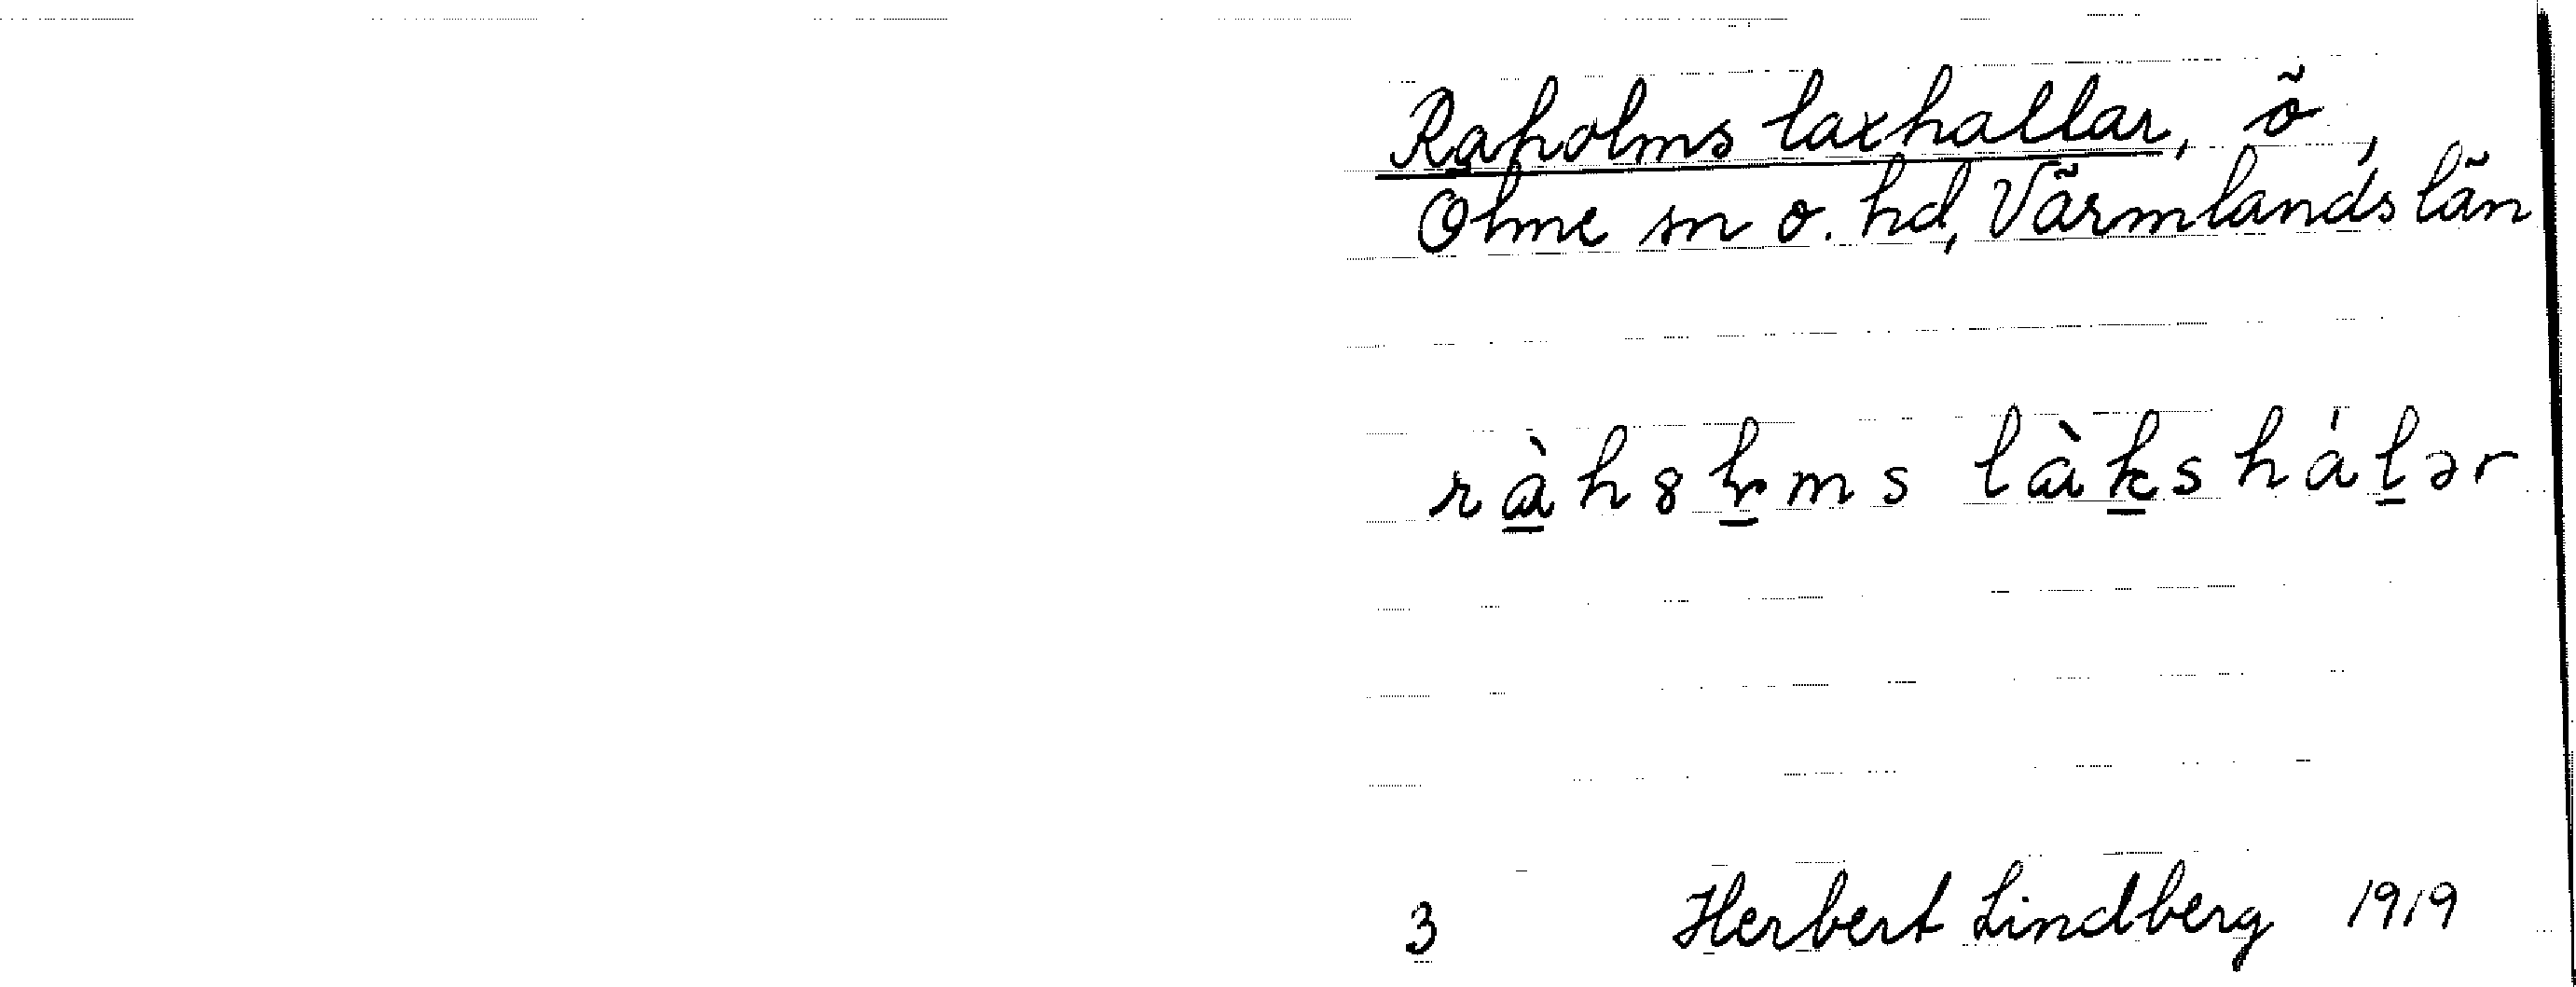 Raholms laxhallar, ö,
Ölme sn o. hd, Värmlands län
ràhȣl̲ms làk̲shál̲ər
3 Herbert Lindberg 1919